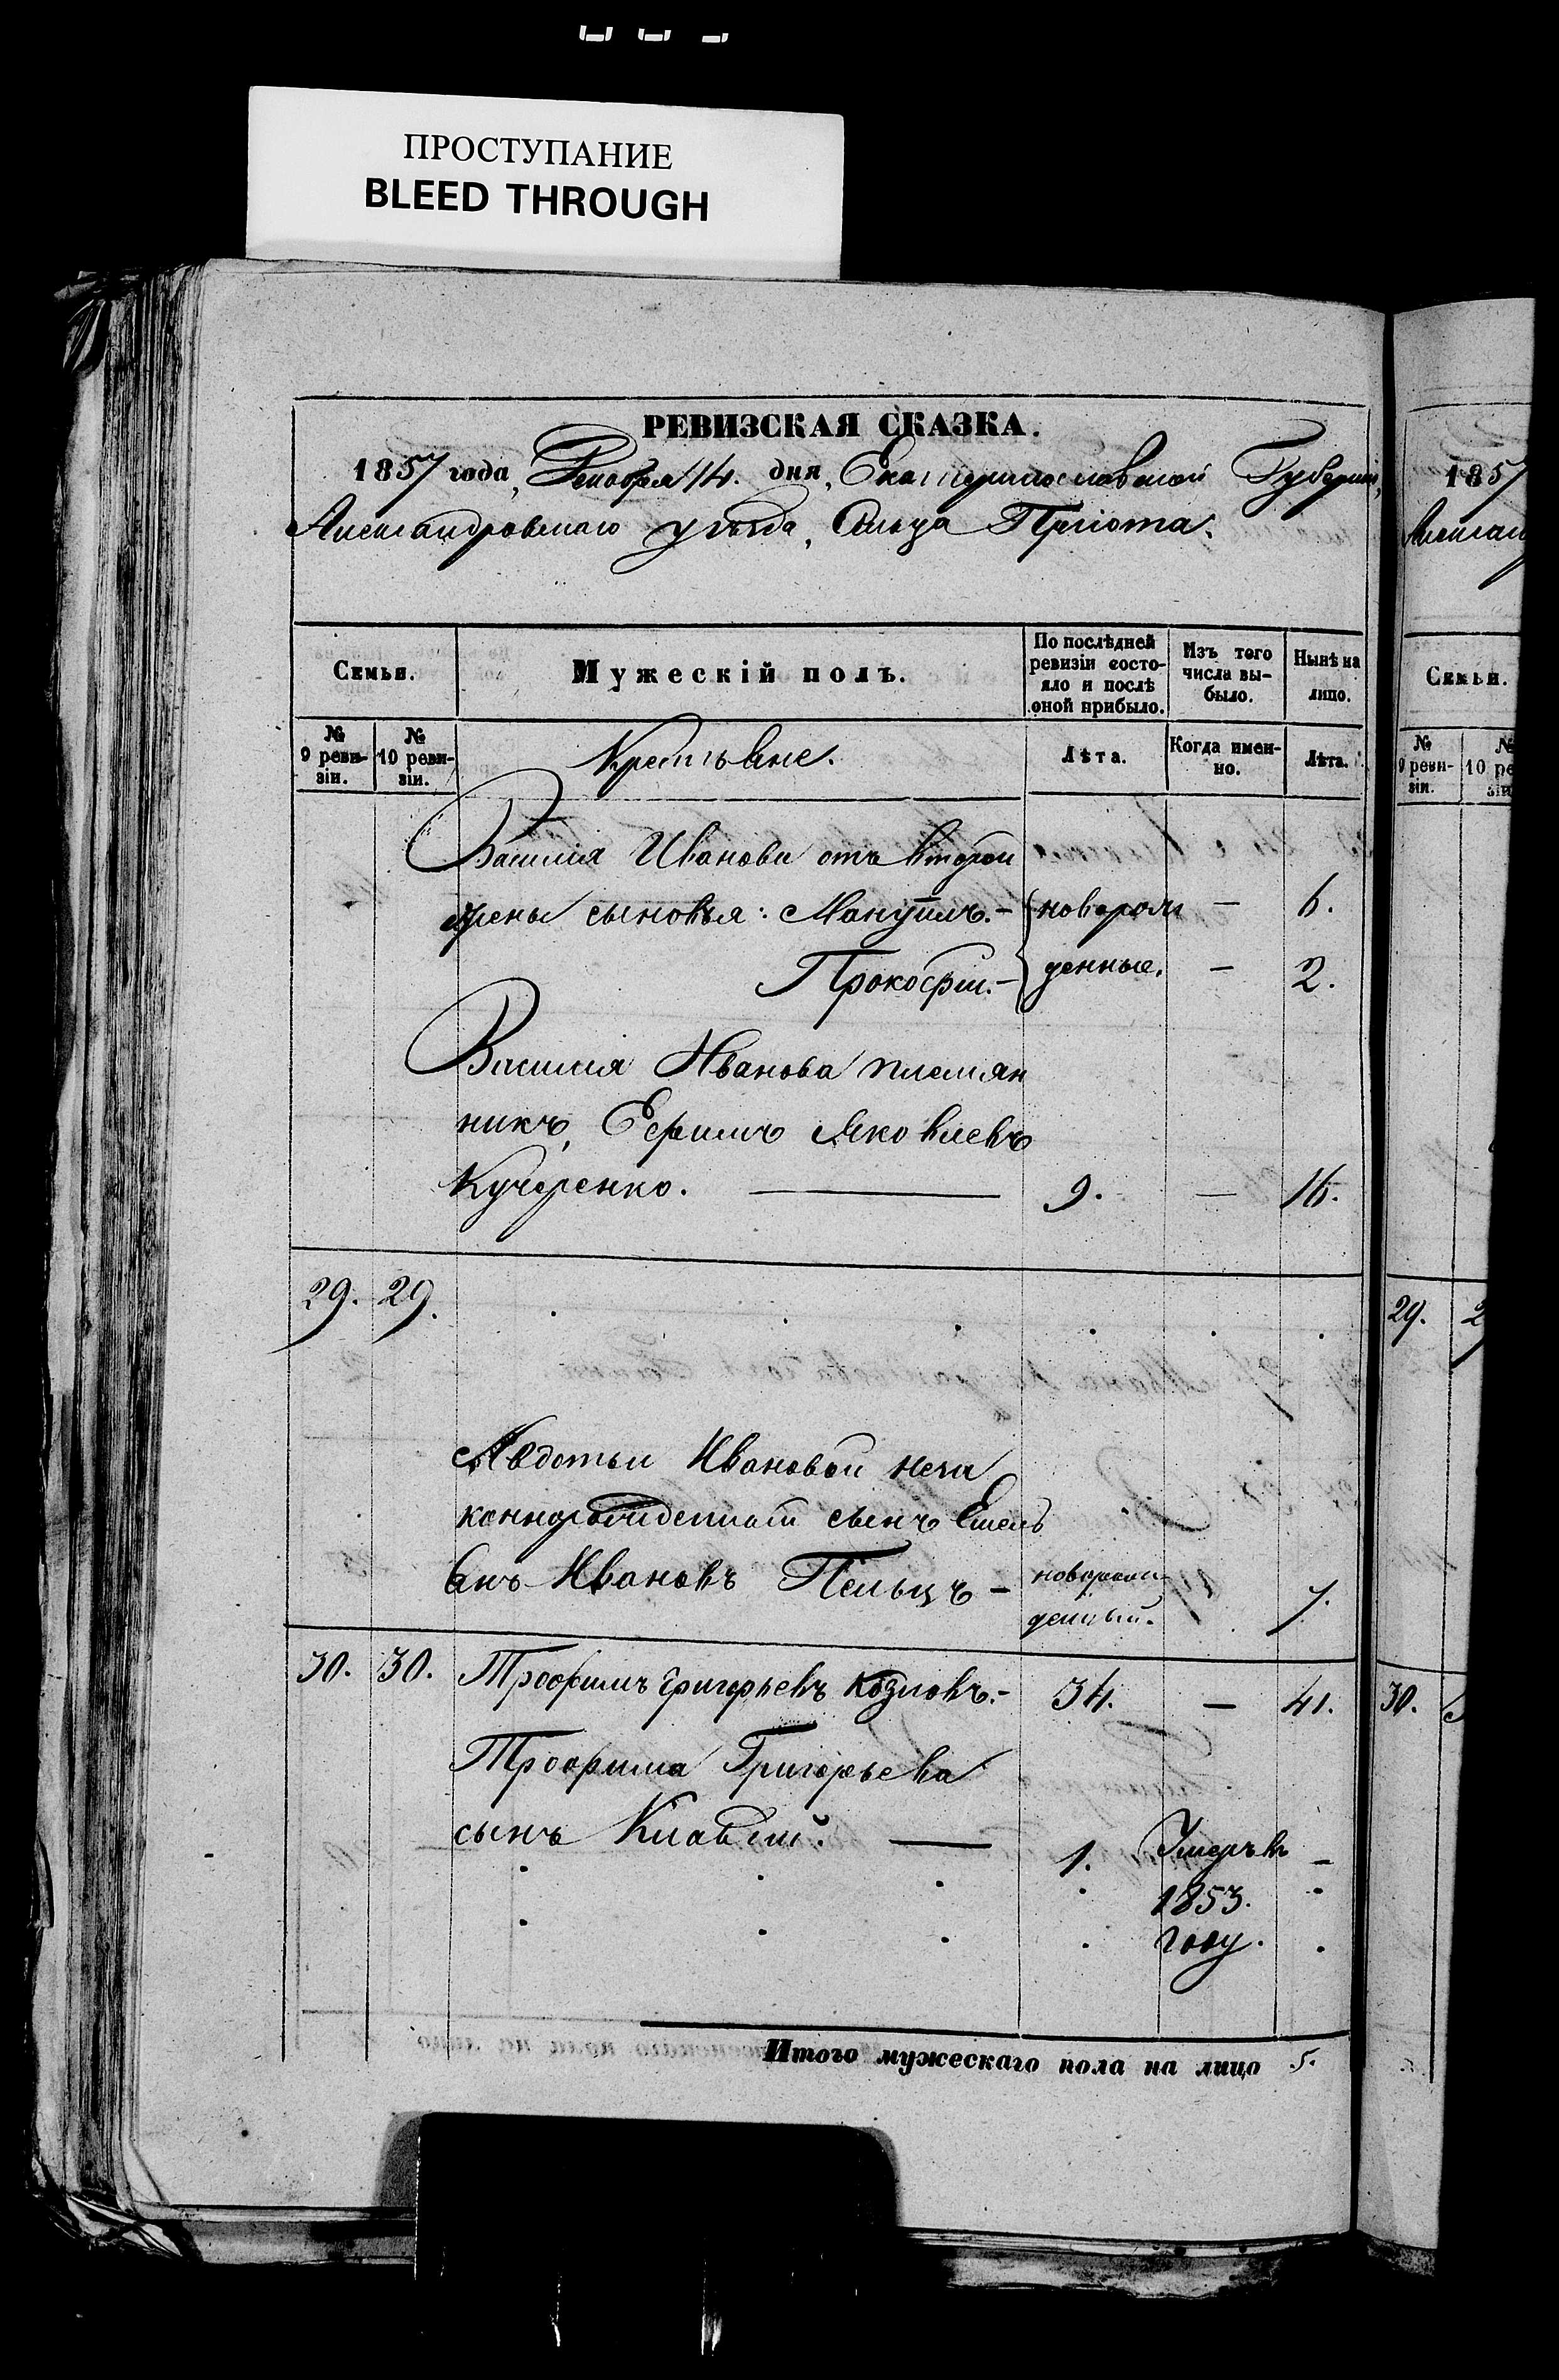 ПРОСТУПАНИЕ
BLEED THROUGH
РЕВИЗСКАЯ СКАЗКА.
1857 года, Декабря 14. дня, Екатеринославской Губерніи,
Александровскаго уѣзда, Сельца Пріюта.
Семьи.
Мужескій полъ.
По послѣдней ревизіи состояло и послѣ оной прибыло.
Изъ того числа выбыло.
Нынѣ на лицо.
№ 9 ревизіи.
№ 10 ревизіи.
Крестьяне.
Лѣта.
Когда именно.
Лѣта.
Василія Иванова отъ второй
жены сыновья: Мануилъ. – новорож – 6.
Прокофій. – денные. – 2.
Василія Иванова племян
никъ, Ефимъ Яковлевъ
Кучеренко. — 9. — 16.
29. 29.
Авдотьи Ивановой неза
коннорожденный сынъ Емель
янъ Ивановъ – новорож
денный. 7.
30. 30. Трофимъ Григорьевъ Козловъ. – 34. – 41.
Трофима Григорьева
сынъ — 1. Умеръ въ –
1853.
году.
Итого мужескаго пола на лицо 5.
1857
Семьи.
№ 9 ревизіи.
№ 10 ре
29. 2
30.